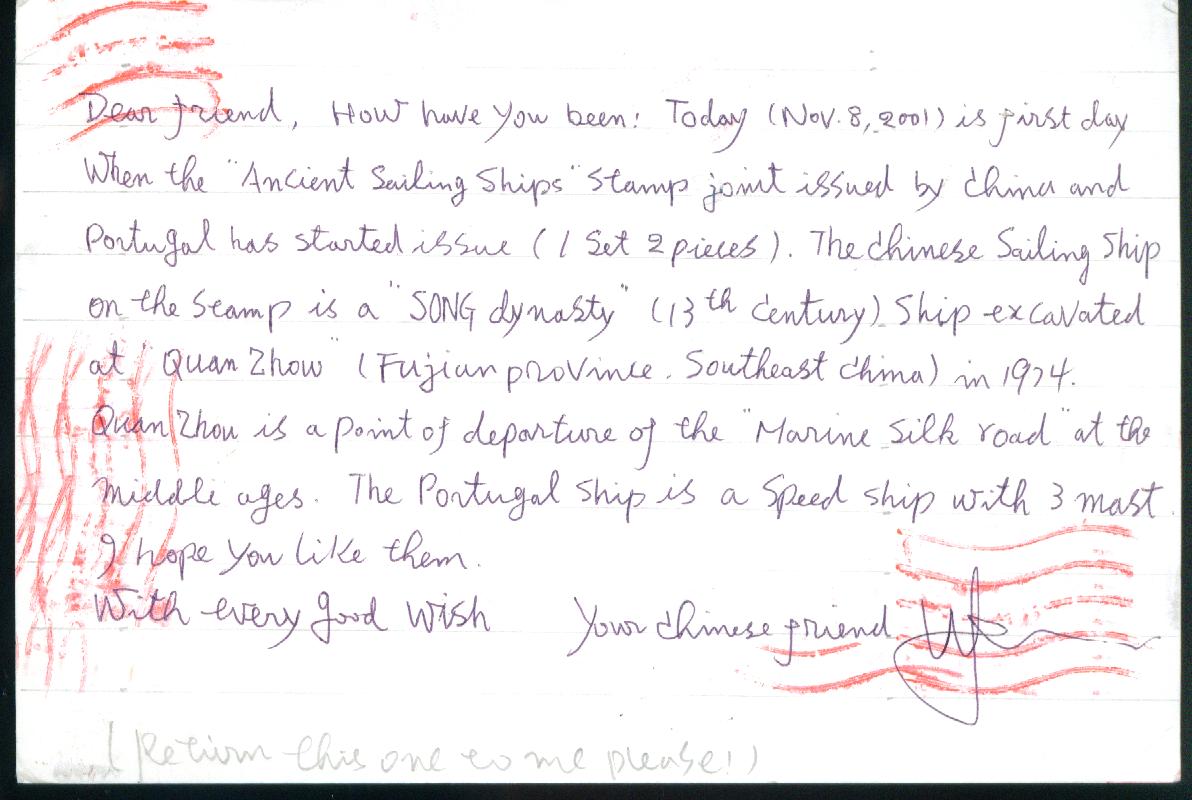 Dear friend, How have you been! Today (Nov. 8, 2001) is first day
When the "Ancient Sailing Ships" Stamp joint issued by China and
Portugal has started issue (1 Set 2 pieces). The Chinese Sailing Ship
on the Stamp is a "SONG dynasty" (13th Century) Ship excavated
at "Quan Zhow" (Fujian province. Southeast China) in 1974.
Quan Zhou is a point of departure of the "Marine Silk road" at the
middle ages. The Portugal Ship is a Speed ship with 3 mast.
I hope you like them.
With every good wish Your Chinese friend
(Return this one to me please!)